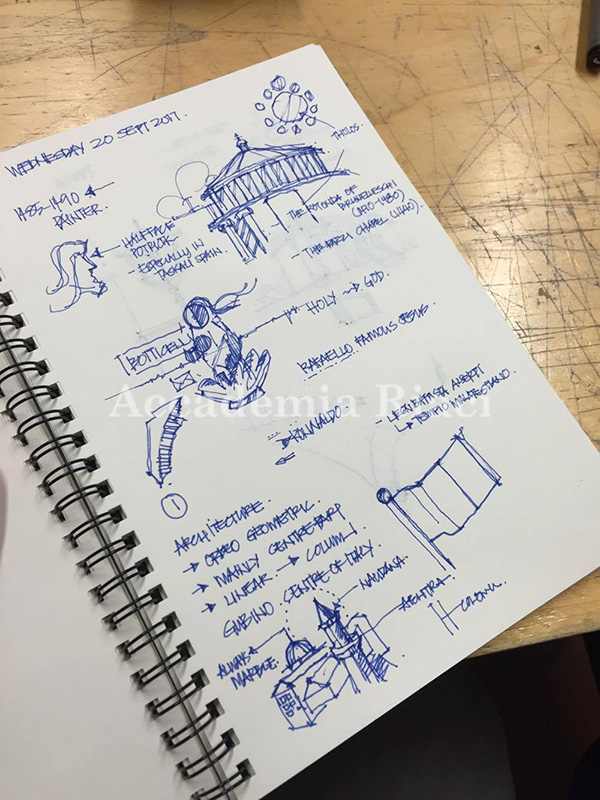 WEDNESDAY 20 SEPT 2017.
THOLOS.
1485-1490
PAINTER.
HALFFACE
POTRICK
- ESPECIALLY IN
TASKALI SPAIN
- THE ROTONDA OF
BRUNELLESCHI
(1420-1480)
- THE PAZZI CHAPEL (1440).
HOLY → GOD.
BOTTICELLI
RAFAELLO FAMOUS JESUS
Accademia Riaci
RONALDO.
- LEON BATTISTA ALBERTI
↳ TEMPIO MALATESTIANO.
1
ARCHITECTURE.
→ GRECO GEOMETRIC.
→ MAINLY CENTRE
→ LINEAR → COLUMN
CENTRE OF ITALY.
ALWAYS
MARBLE.